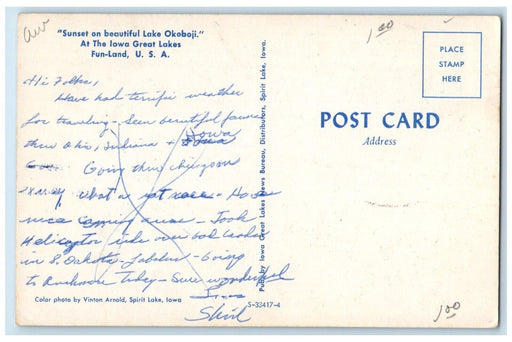 aw
"Sunset on beautiful Lake Okoboji."
At The Iowa Great Lakes
Fun-Land, U. S. A.
Hi Folks,
Have had terrific weather
for traveling - Seen beautiful farms
thru Ohio, Indiana + Iowa
Going thru
What a
nice
Helicopter ride over bad lands
in S. Dakota - fabulous - Going
to Rushmore Today - Sure wonderful
Shirl
Color photo by Vinton Arnold, Spirit Lake, Iowa
S-33417-4
Pub. by Iowa Great Lakes News Bureau, Distributors, Spirit Lake, Iowa.
POST CARD
Address
PLACE
STAMP
HERE
1.00
1.00